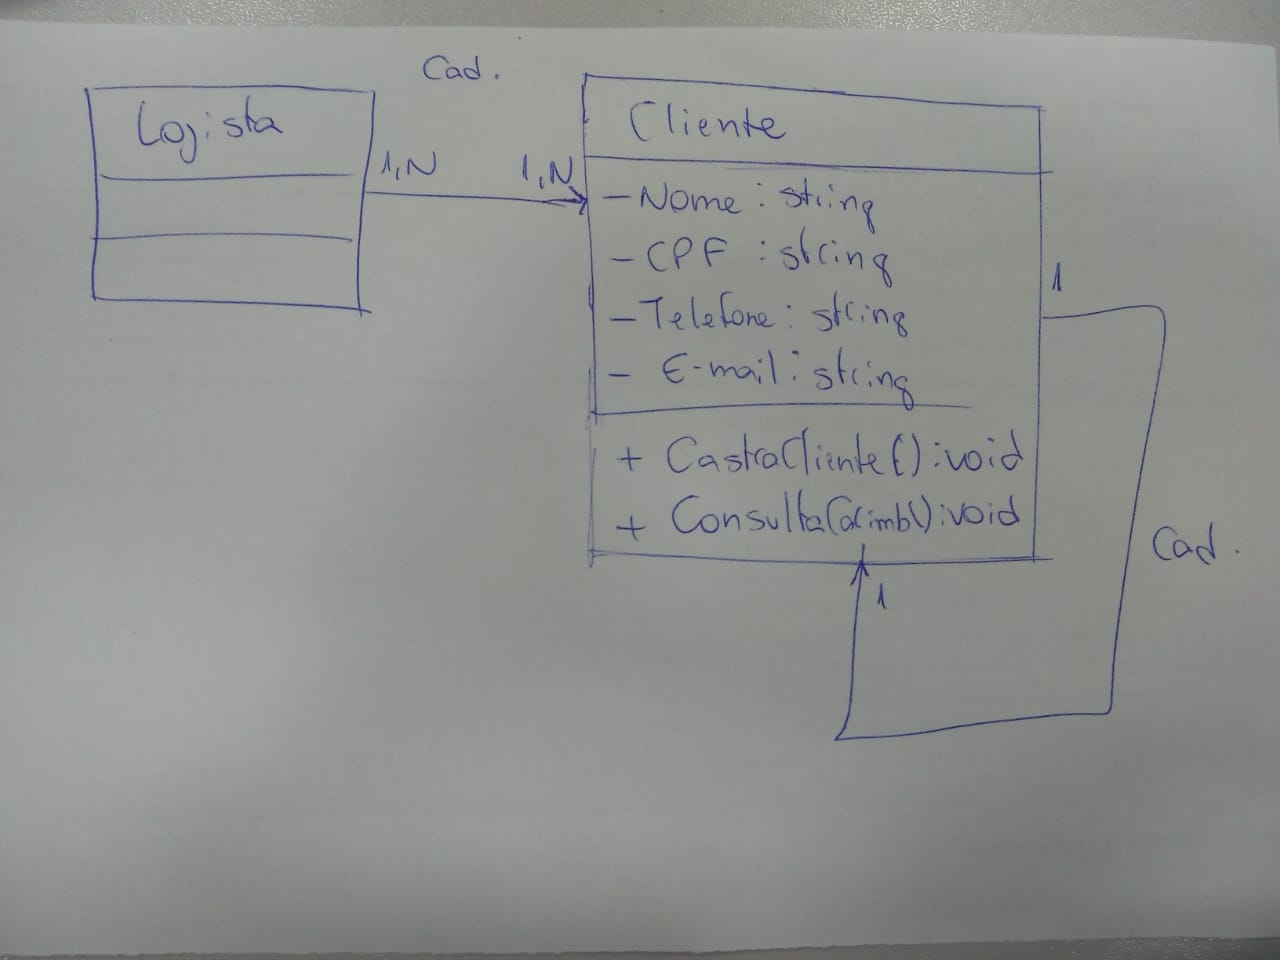 Cad.
Logista
1,N
1,N
Cliente
- Nome : string
- CPF : string
- Telefone : string
- E-mail : string
+ CastraCliente() : void
+ Consulta( ) : void
1
Cad.
1